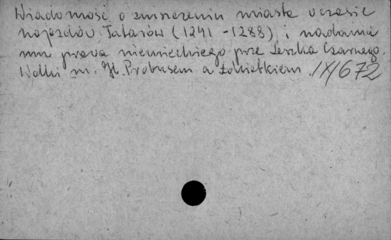 Wiadomość o zniszczeniu miasta w czasie
najazdów Tatarów (1241 - 1288) i nadanie
mu prawa niemieckiego prze Leszka Czarnego.
Walki m. H. Probusem a Łokietkiem. IX/672